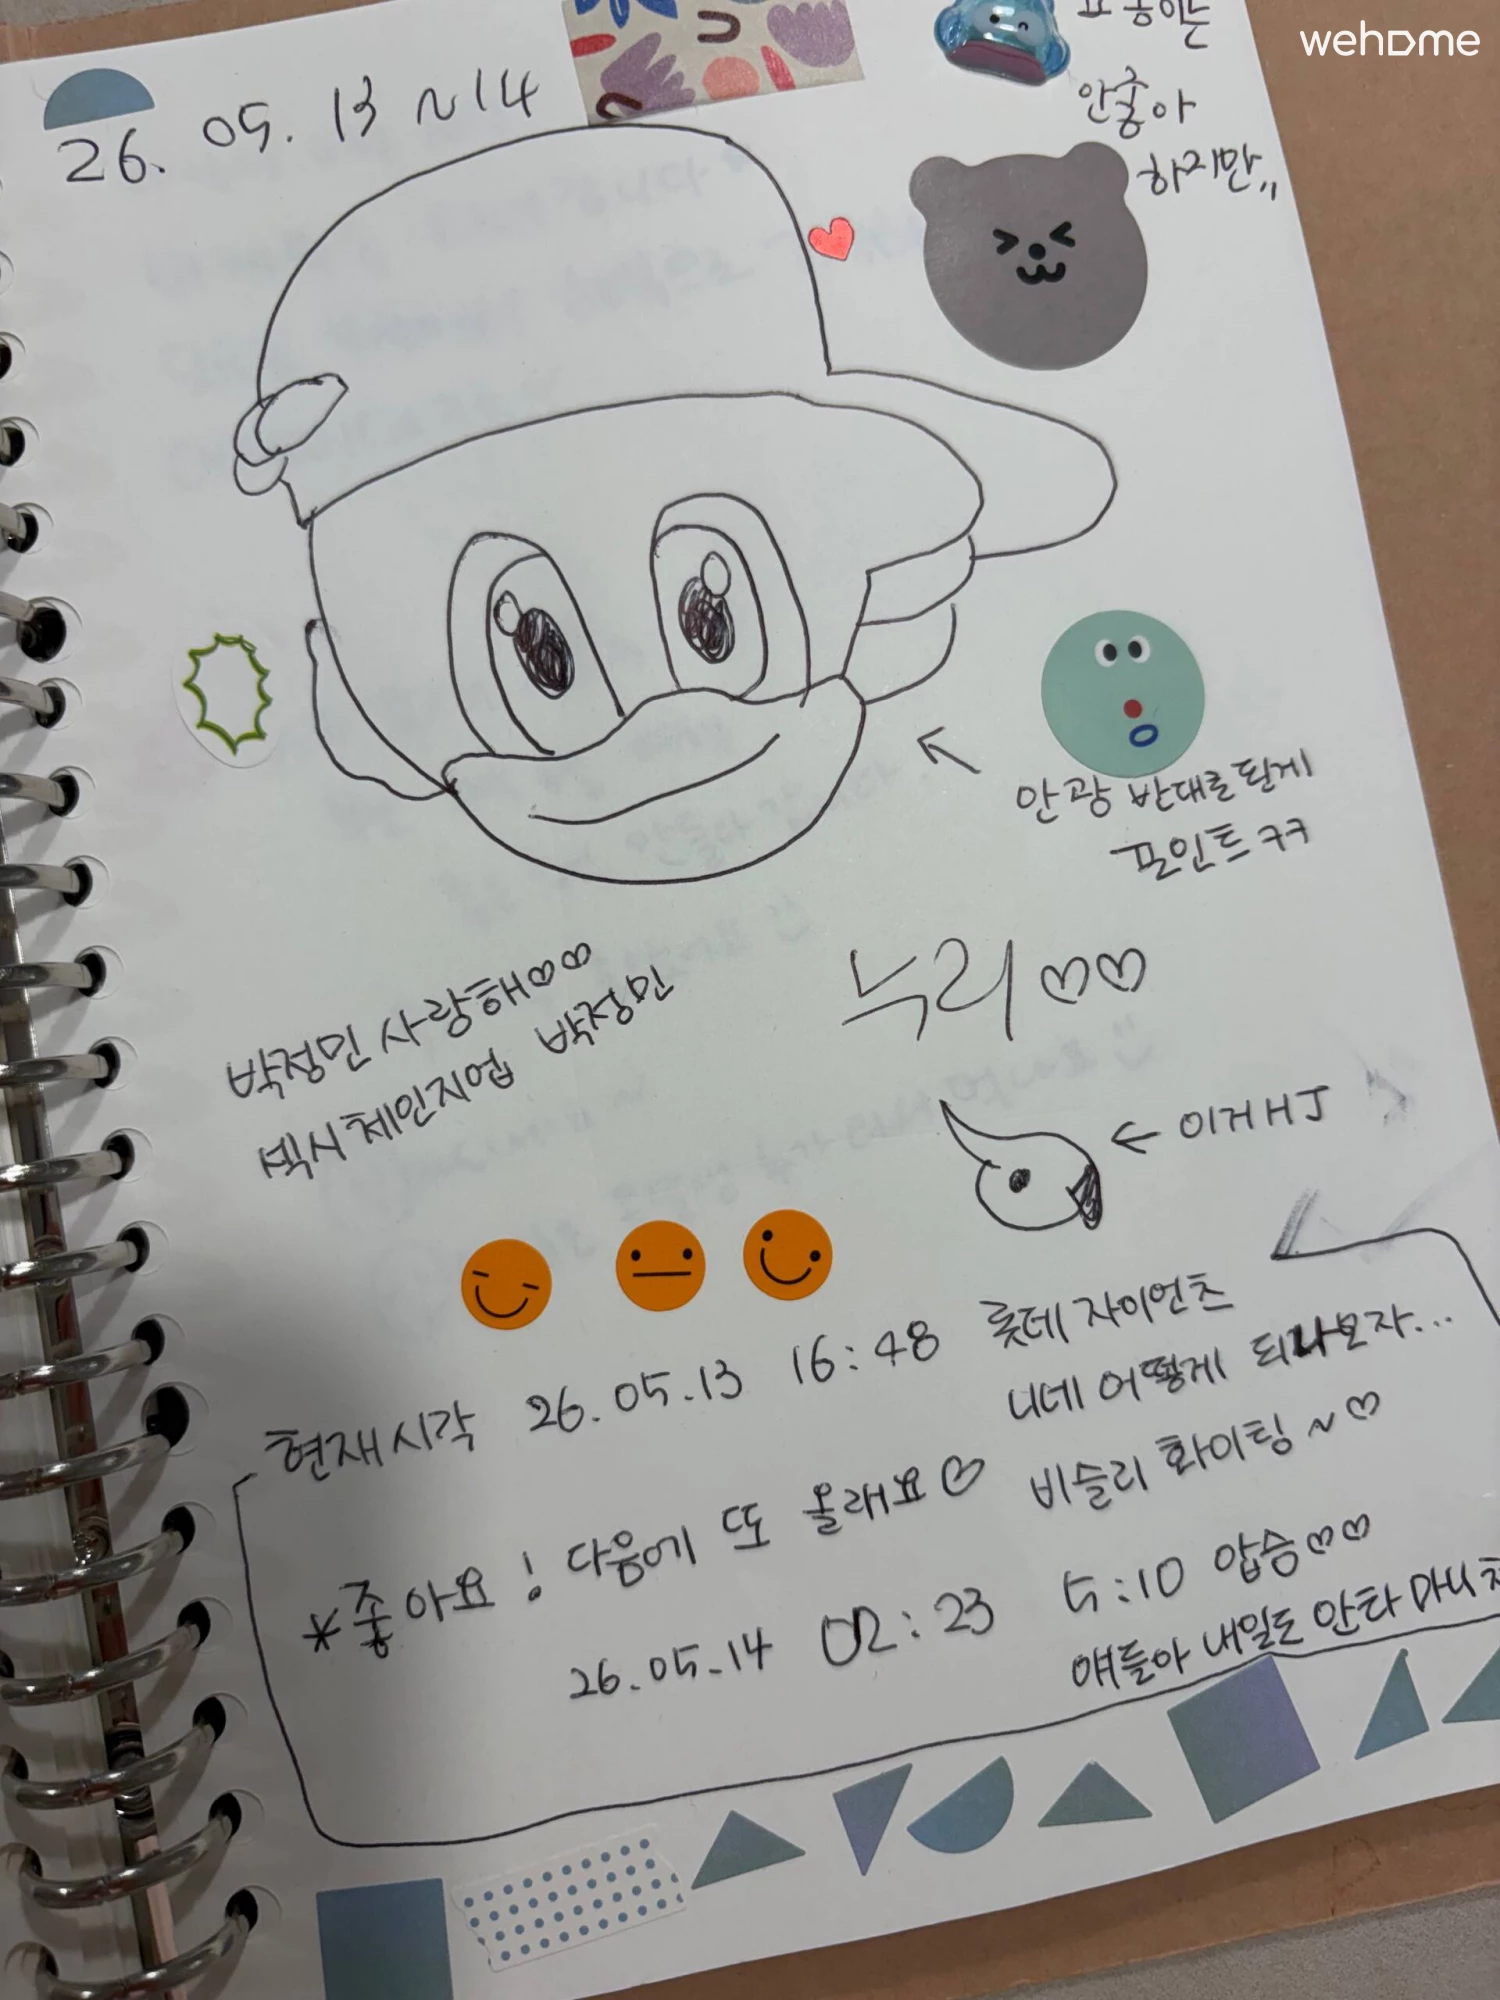 wehome
안좋아
하지만,,
26. 05. 13 ~ 14
안광 반대로 된게
포인트 ㅋㅋ
누리♡♡
박정민 사랑해♡♡
섹시체인지업 박정민
← 이거 HJ
현재시각 26. 05. 13 16:48
롯데 자이언츠
니네 어떻게 되나보자...
비슬리 화이팅~♡
*좋아요! 다음에 또 올래요♡
26. 05. 14 02:23
5:10 압승♡♡
얘들아 내일도 안타 마니